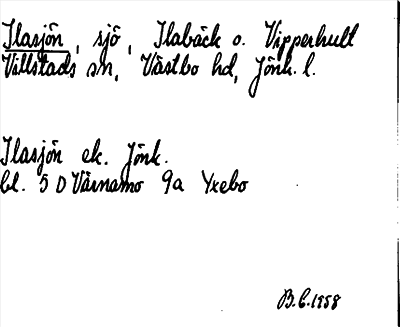 Ilasjön, sjö, Ilabäck o. Vipperhult
Villstads sn, Västbo hd, Jönk. l.
Ilasjön ek. Jönk.
bl. 5 D Värnamo 9a Yxebo
B.C.1958